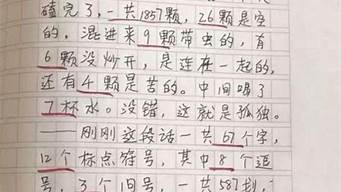 嗑完了,一共1857颗,26颗是空
的,混进来9颗带虫的,有
6颗没炒开,是连在一起的,
还有4颗是苦的。中间喝了
7杯水。没错,这就是孤独。
——刚刚这段话一共67个字,
12个标点符号,其中8个逗
号,3个句号,一共587划,